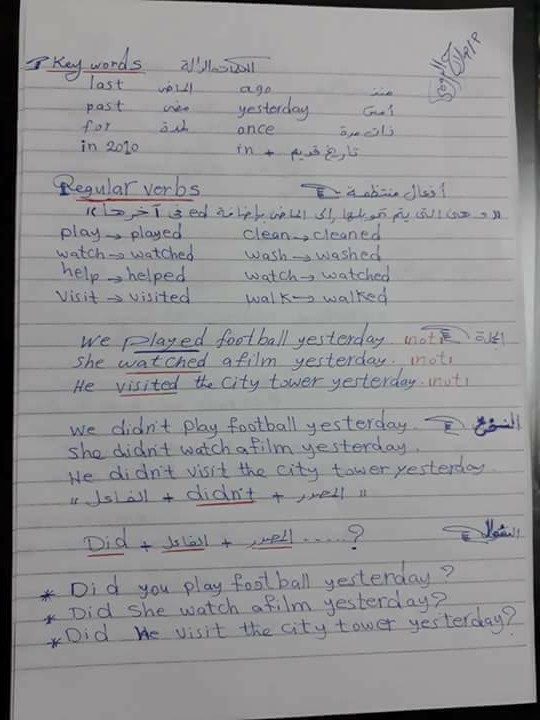 Key words الكلمات الدالة
last الماضى ago منذ
past مضى yesterday أمس
for لمدة once ذات مرة
in 2010 in + تاريخ قديم
Regular verbs أفعال منتظمة
"وهى التى يتم تحويلها إلى الماضى بإضافة ed فى آخرها"
play → played clean → cleaned
watch → watched wash → washed
help → helped watch → watched
visit → visited walk → walked
We played football yesterday (not)
She watched a film yesterday. (not)
He visited the city tower yesterday. (not)
We didn't play football yesterday.
She didn't watch a film yesterday.
He didn't visit the city tower yesterday.
"الفاعل + didn't + المصدر"
Did + الفاعل + المصدر ......? السؤال
* Did you play football yesterday?
* Did She watch a film yesterday?
* Did He visit the city tower yesterday?